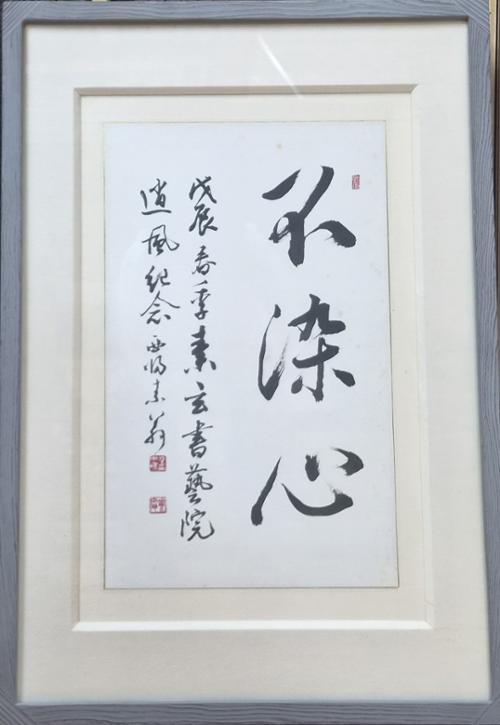 不染心
戊辰春季素玄書藝院
逍風紀念 素翁